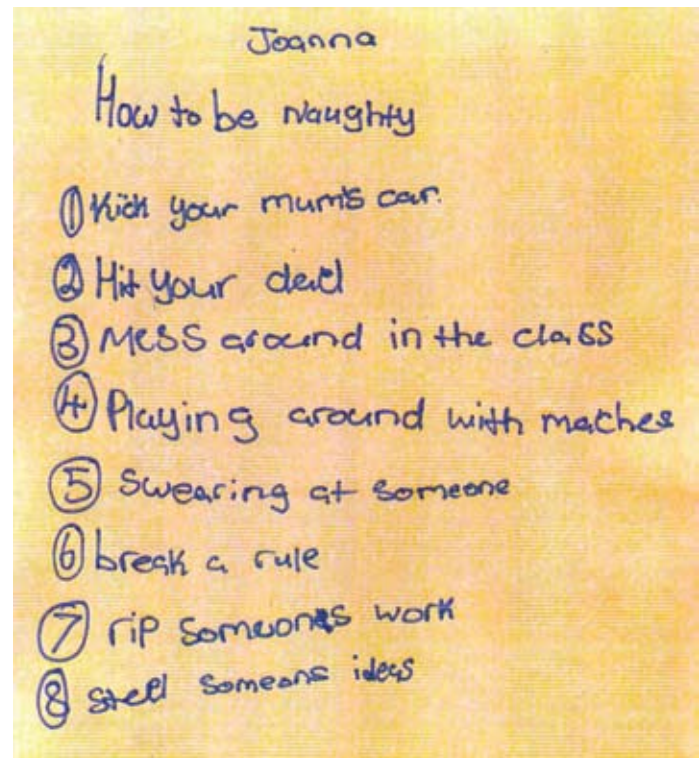 Joanna
How to be Naughty
① Kick your mum's car.
② Hit your dad
③ Mess around in the class
④ Playing around with maches
⑤ swearing at someone
⑥ break a rule
⑦ rip someones work
⑧ steel someons ideas